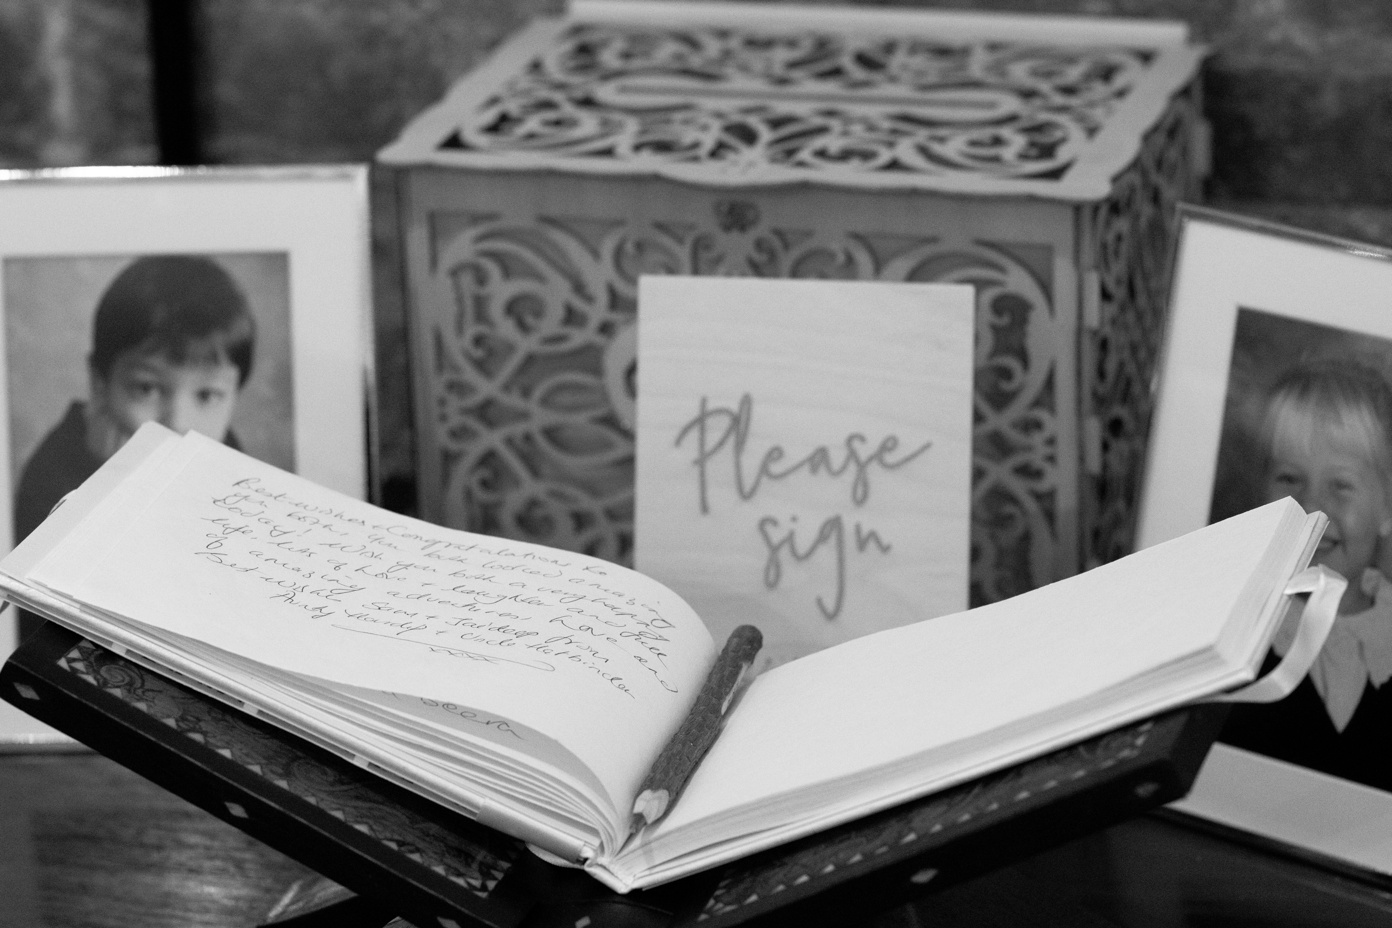 Please
sign
Best wishes & Congratulations to
you both. You both looked amazing
today! Wish you both a very happy
life. Lots of love & laughter and full
of amazing adventures! Love and
best wishes Sean & Jaideep from
Aunty & Uncle